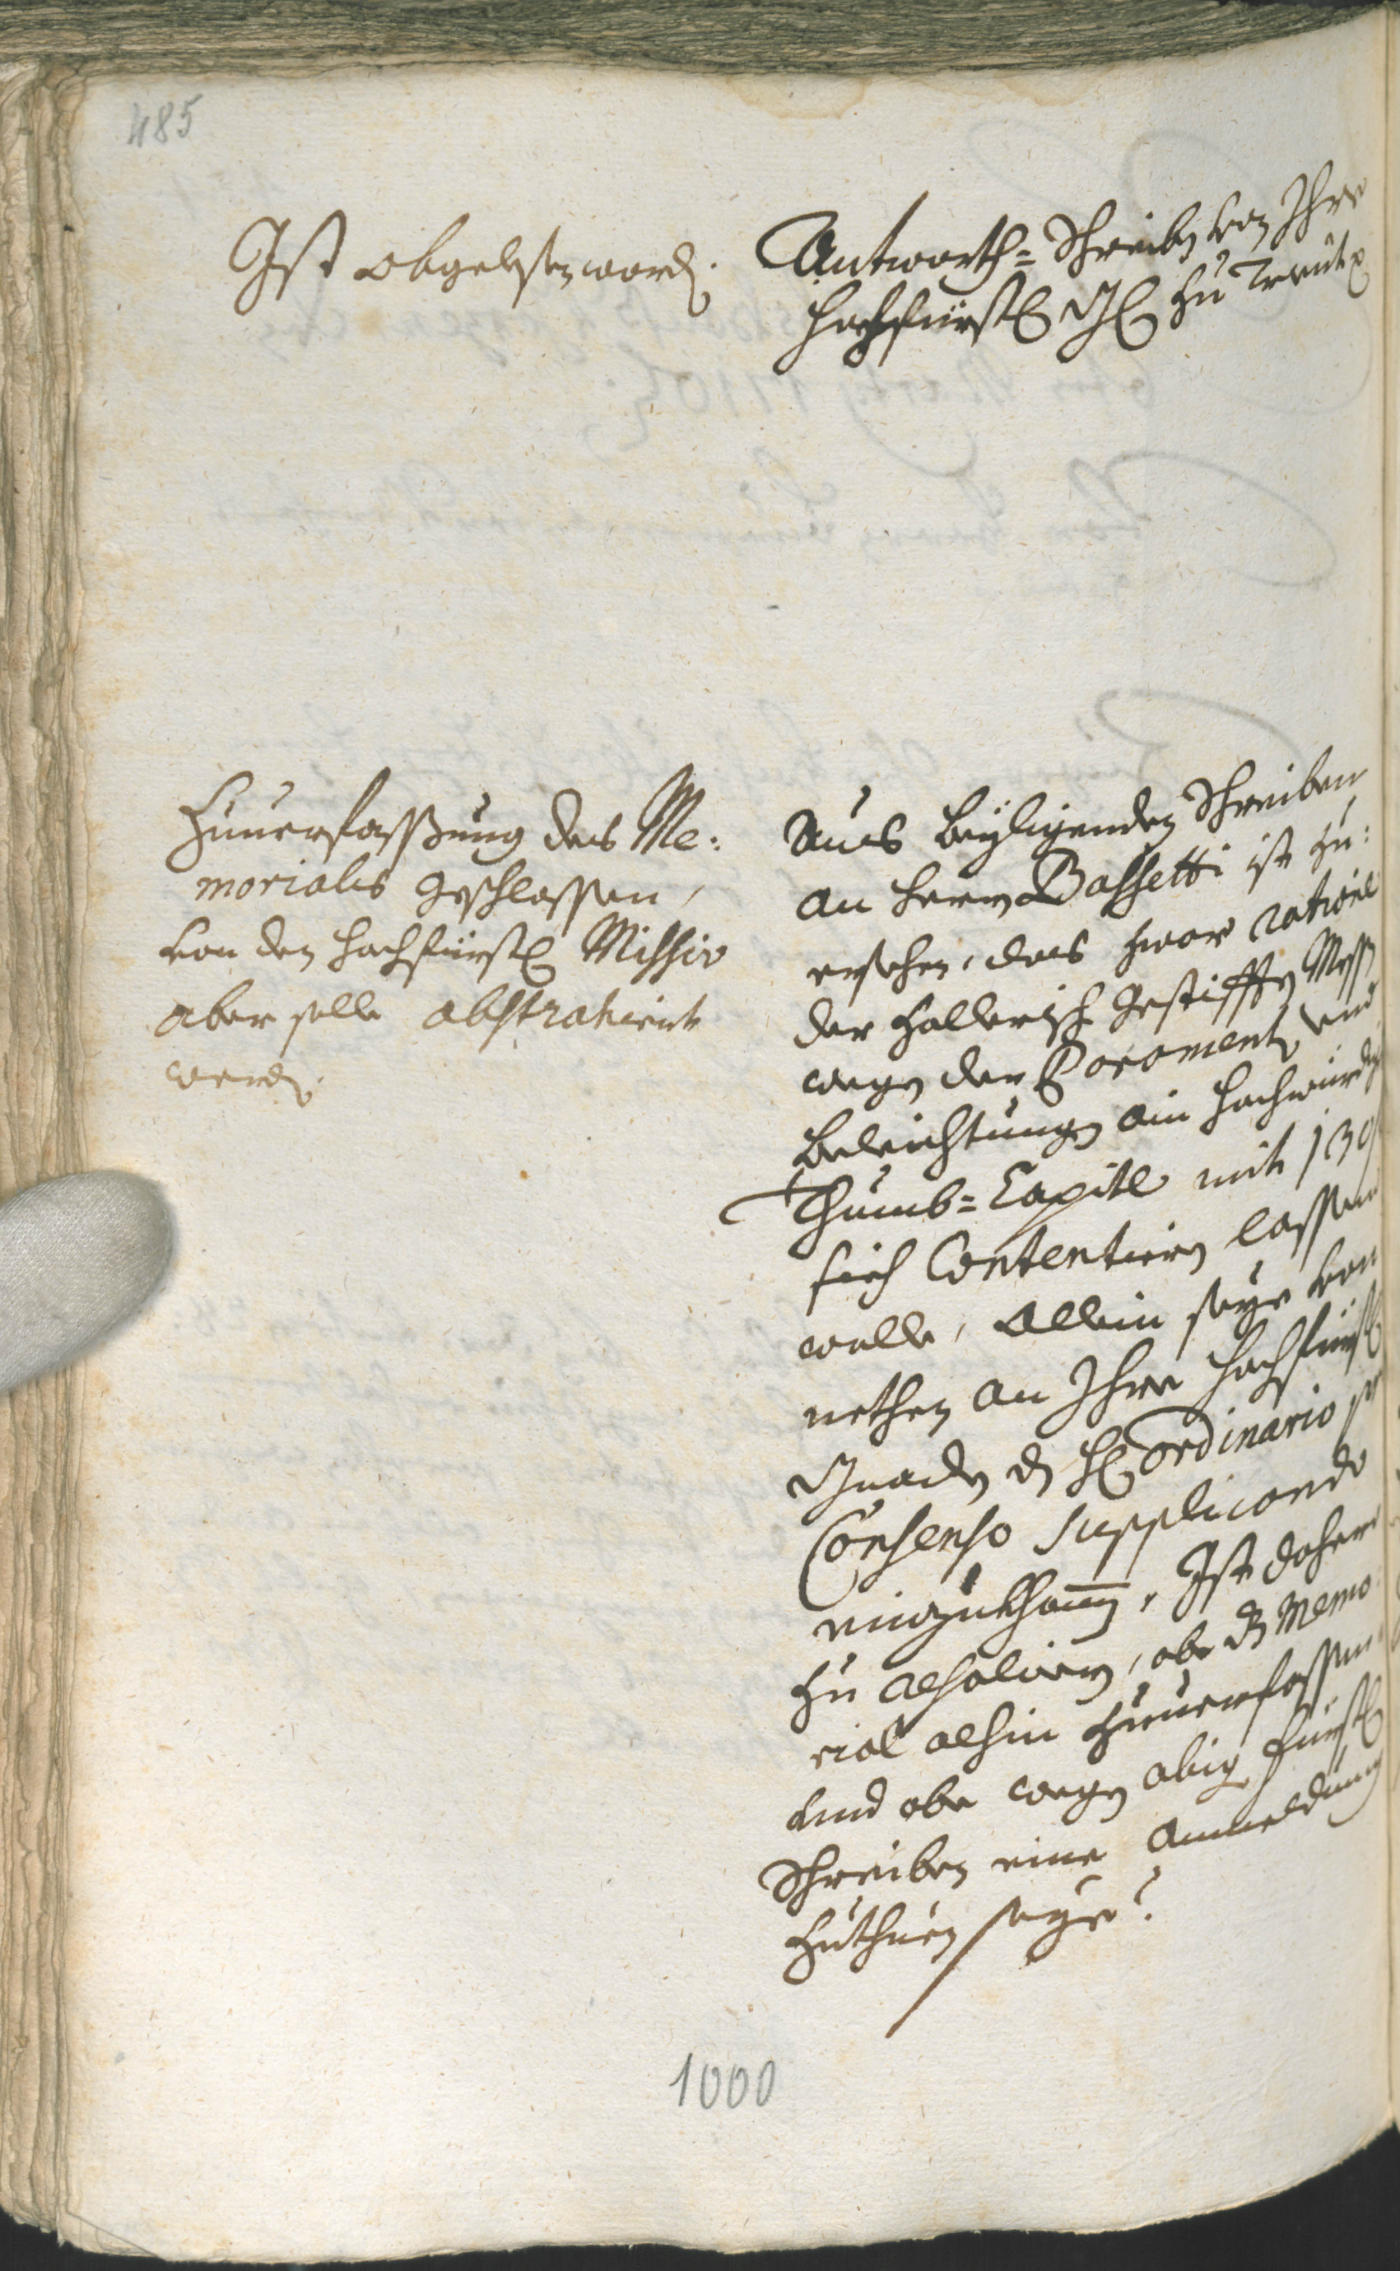 485
Ist abgelesen word.
Antworth-Schreiben von Ihro
hochfürstl. Gl. zu Trient
Zuuerfassung des Me:
morials geschlossen,
von den hochfürstl. Missiv
aber solle abstrahiert
werd.
Aus beyligenden Schreiben
an herrn Bassetti ist zu:
ersehen, das zwar ratione
der hallerisch gestifften Mess
wegen der Paramenten und
beleichtungen ain hochwürdig
Thumb-Capitl mit 130
sich Contentiern lassen
wolle, allein seye von
nethen an Ihro hochfürstl.
Gnaden als Ordinario pro
Consenso supplicando
einzukhommen, Ist dahero
zu resolviern, ob das Memo
rial alhin zuuerfassen
und ob wegen obig fürstl.
Schreiben eine anmeldung
zuthuen seye?
1000